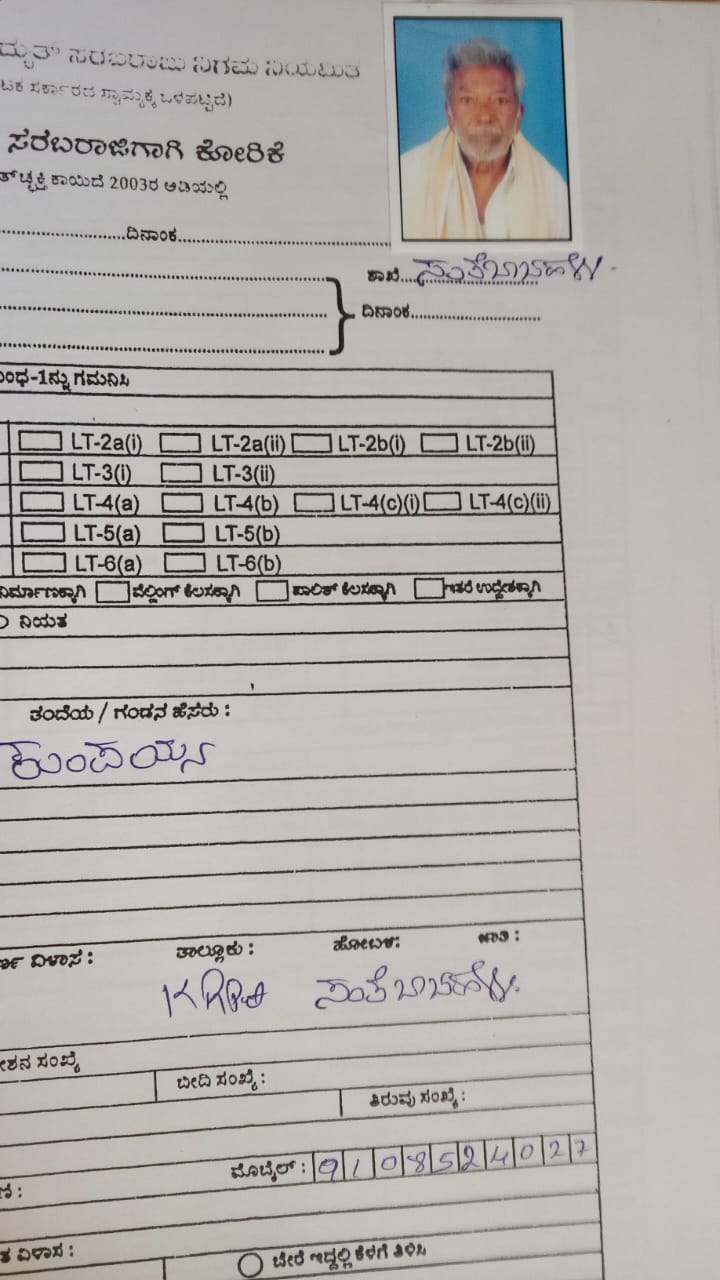 ಸರಬರಾಜು ನಿಗಮ ನಿಯಮಿತ
ಸರ್ಕಾರದ ಸ್ವಾಮ್ಯಕ್ಕೆ ಒಳಪಟ್ಟಿದೆ)
ಸರಬರಾಜಿಗಾಗಿ ಕೋರಿಕೆ
ಕಾಯಿದೆ 2003ರ ಅಡಿಯಲ್ಲಿ
ದಿನಾಂಕ
ಶಾಖೆ ಸಂತೆಬಾಚಹಳ್ಳಿ
ದಿನಾಂಕ
-1ನ್ನು ಗಮನಿಸಿ
LT-2a(i) LT-2a(ii) LT-2b(i) LT-2b(ii)
LT-3(i) LT-3(ii)
LT-4(a) LT-4(b) LT-4(c)(i) LT-4(c)(ii)
LT-5(a) LT-5(b)
LT-6(a) LT-6(b)
ನಿರ್ಮಾಣಕ್ಕಾಗಿ ವೆಲ್ಡಿಂಗ್ ಕೆಲಸಕ್ಕಾಗಿ ಪಾಲಿಶ್ ಕೆಲಸಕ್ಕಾಗಿ ಇತರೆ ಉದ್ದೇಶಕ್ಕಾಗಿ
ನಿಯತ
ತಂದೆಯ / ಗಂಡನ ಹೆಸರು :
ವಿಳಾಸ : ತಾಲ್ಲೂಕು : ಹೋಬಳಿ: ಜಾತಿ :
ಸಂತೆಬಾಚಹಳ್ಳಿ
ಸಂಖ್ಯೆ
ಬೀದಿ ಸಂಖ್ಯೆ :
ತಿರುವು ಸಂಖ್ಯೆ :
ಮೊಬೈಲ್ : 9108524027
ವಿಳಾಸ :
ಬೇರೆ ಇದ್ದಲ್ಲಿ ಕೆಳಗೆ ತಿಳಿಸಿ